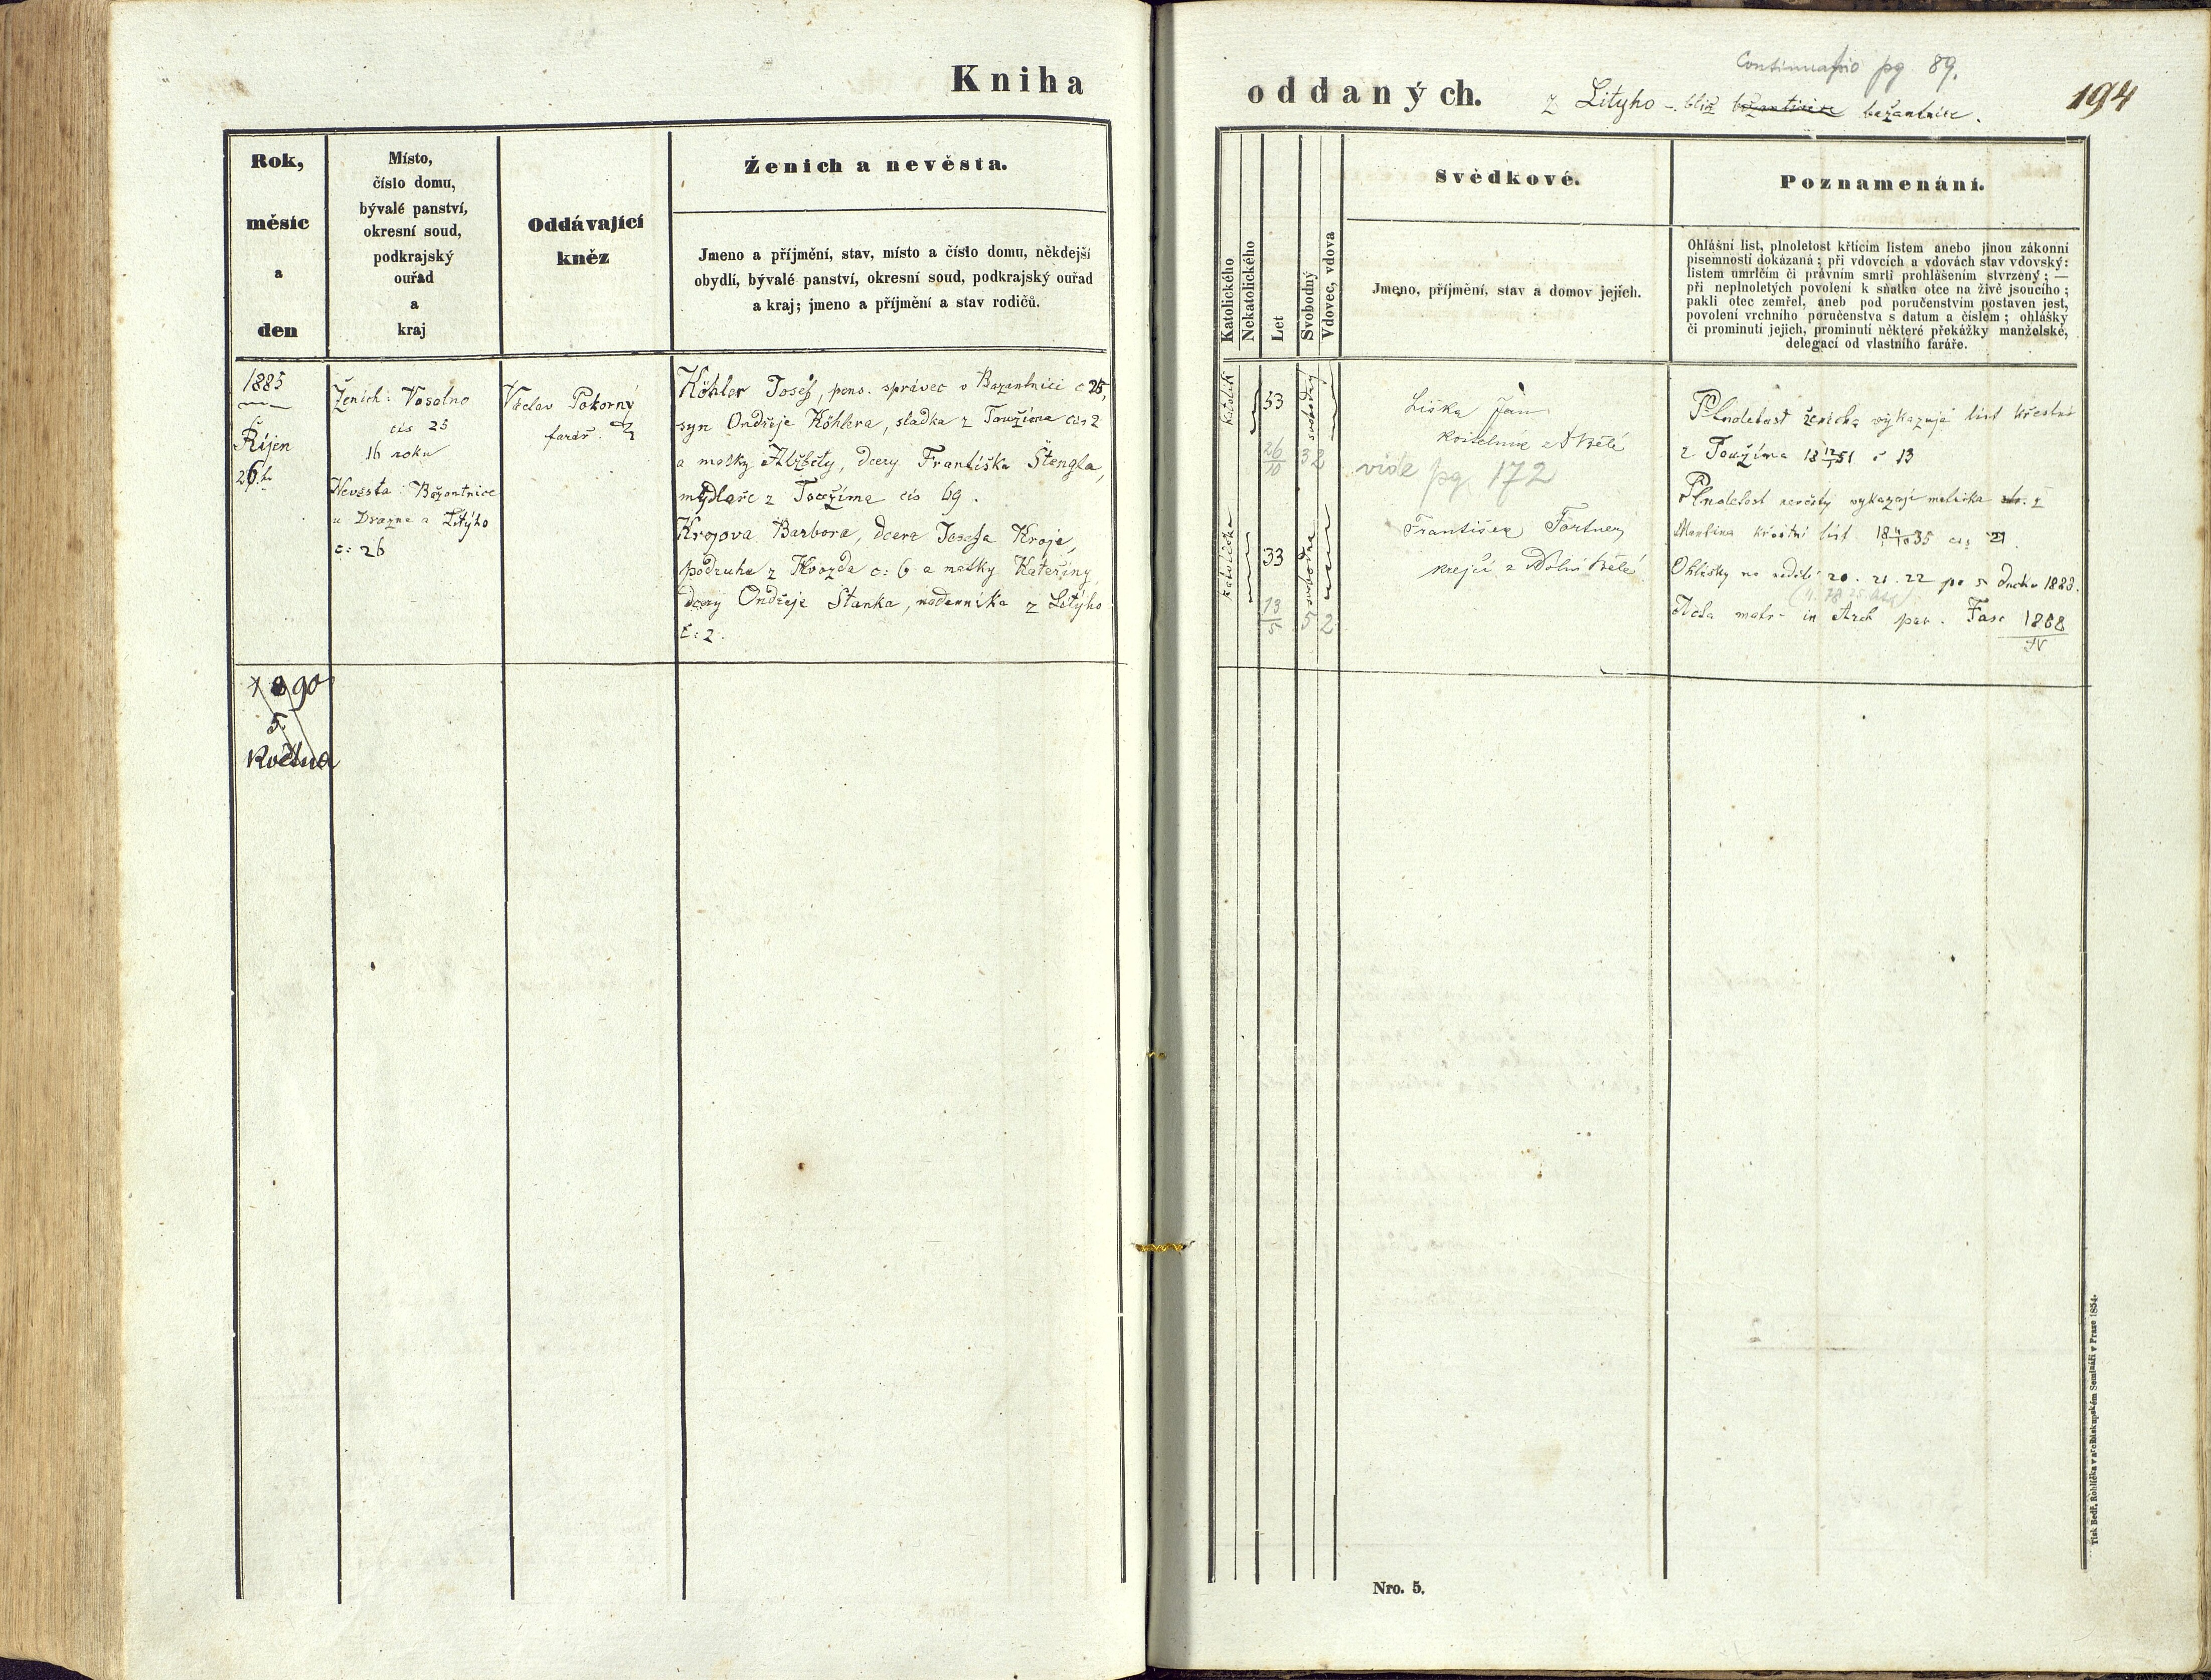 Kniha
oddaných.
Continuatio pg 89.
z Lityho - blíž bažantnice bažantnice.
194
Rok,
měsíc
a
den
Místo,
číslo domu,
bývalé panství,
okresní soud,
podkrajský
ouřad
a
kraj
Oddávající
kněz
Ženich a nevěsta.
Jmeno a příjmění, stav, místo a číslo domu, někdejší
obydlí, bývalé panství, okresní soud, podkrajský ouřad
a kraj; jmeno a příjmění a stav rodičů.
Katolického
Nekatolického
Let
Svobodný
Vdovec, vdova
Svědkové.
Jmeno, příjmění, stav a domov jejich.
Poznamenání.
Ohlášní list, plnoletost křtícím listem anebo jinou zákonní
písemností dokázaná; při vdovcích a vdovách stav vdovský:
listem umrlčím či právním smrti prohlášením stvrzený; —
při neplnoletých povolení k sňatku otce na živě jsoucího;
pakli otec zemřel, aneb pod poručenstvím postaven jest,
povolení vrchního poručenstva s datum a číslem; ohlášky
či prominutí jejich, prominutí některé překážky manželské,
delegací od vlastního faráře.
1885
Říjen
26.ho
Ženich: Vosolno
čís 25
16 roku
Nevesta: Bažantnice
u Drazne a Litýho
č: 26
Václav Pokorný
farář.
Köhler Josef, pens. správec v Bazantnici č 25,
syn Ondřeje Köhlera, sladka z Toužima čis 2
a matky Alžběty, dcery Františka Štengla,
mydlaře z Toužima čis 69.
Krojova Barbora, dcera Josefa Kroje,
podruha z Hvozda č: 6 a matky Kateřiny
dcery Ondřeje Stanka, nádenníka z Litýho
č: 2.
katolík
53
svobodný
26/10 32
katolička
33
svobodna
13/5 52
Liška Jan
kostelník z Bělé
vide pg 172
František Fortner
krejčí z Dolní Bělé
Plnoletost ženicha vykazuje list křestní
z Toužima 18 12/1 51 č 13
Plnoletost nevěsty vykazuje matrika
Martina křestní list
Ohlášky na neděli 20. 21. 22 po s Duchu 1883.
Fasc 1868
IV
1890
5.
Května
Nro. 5.
Tisk Bedř. Rohlíčka v arcibiskupském Semináři v Praze 1854.